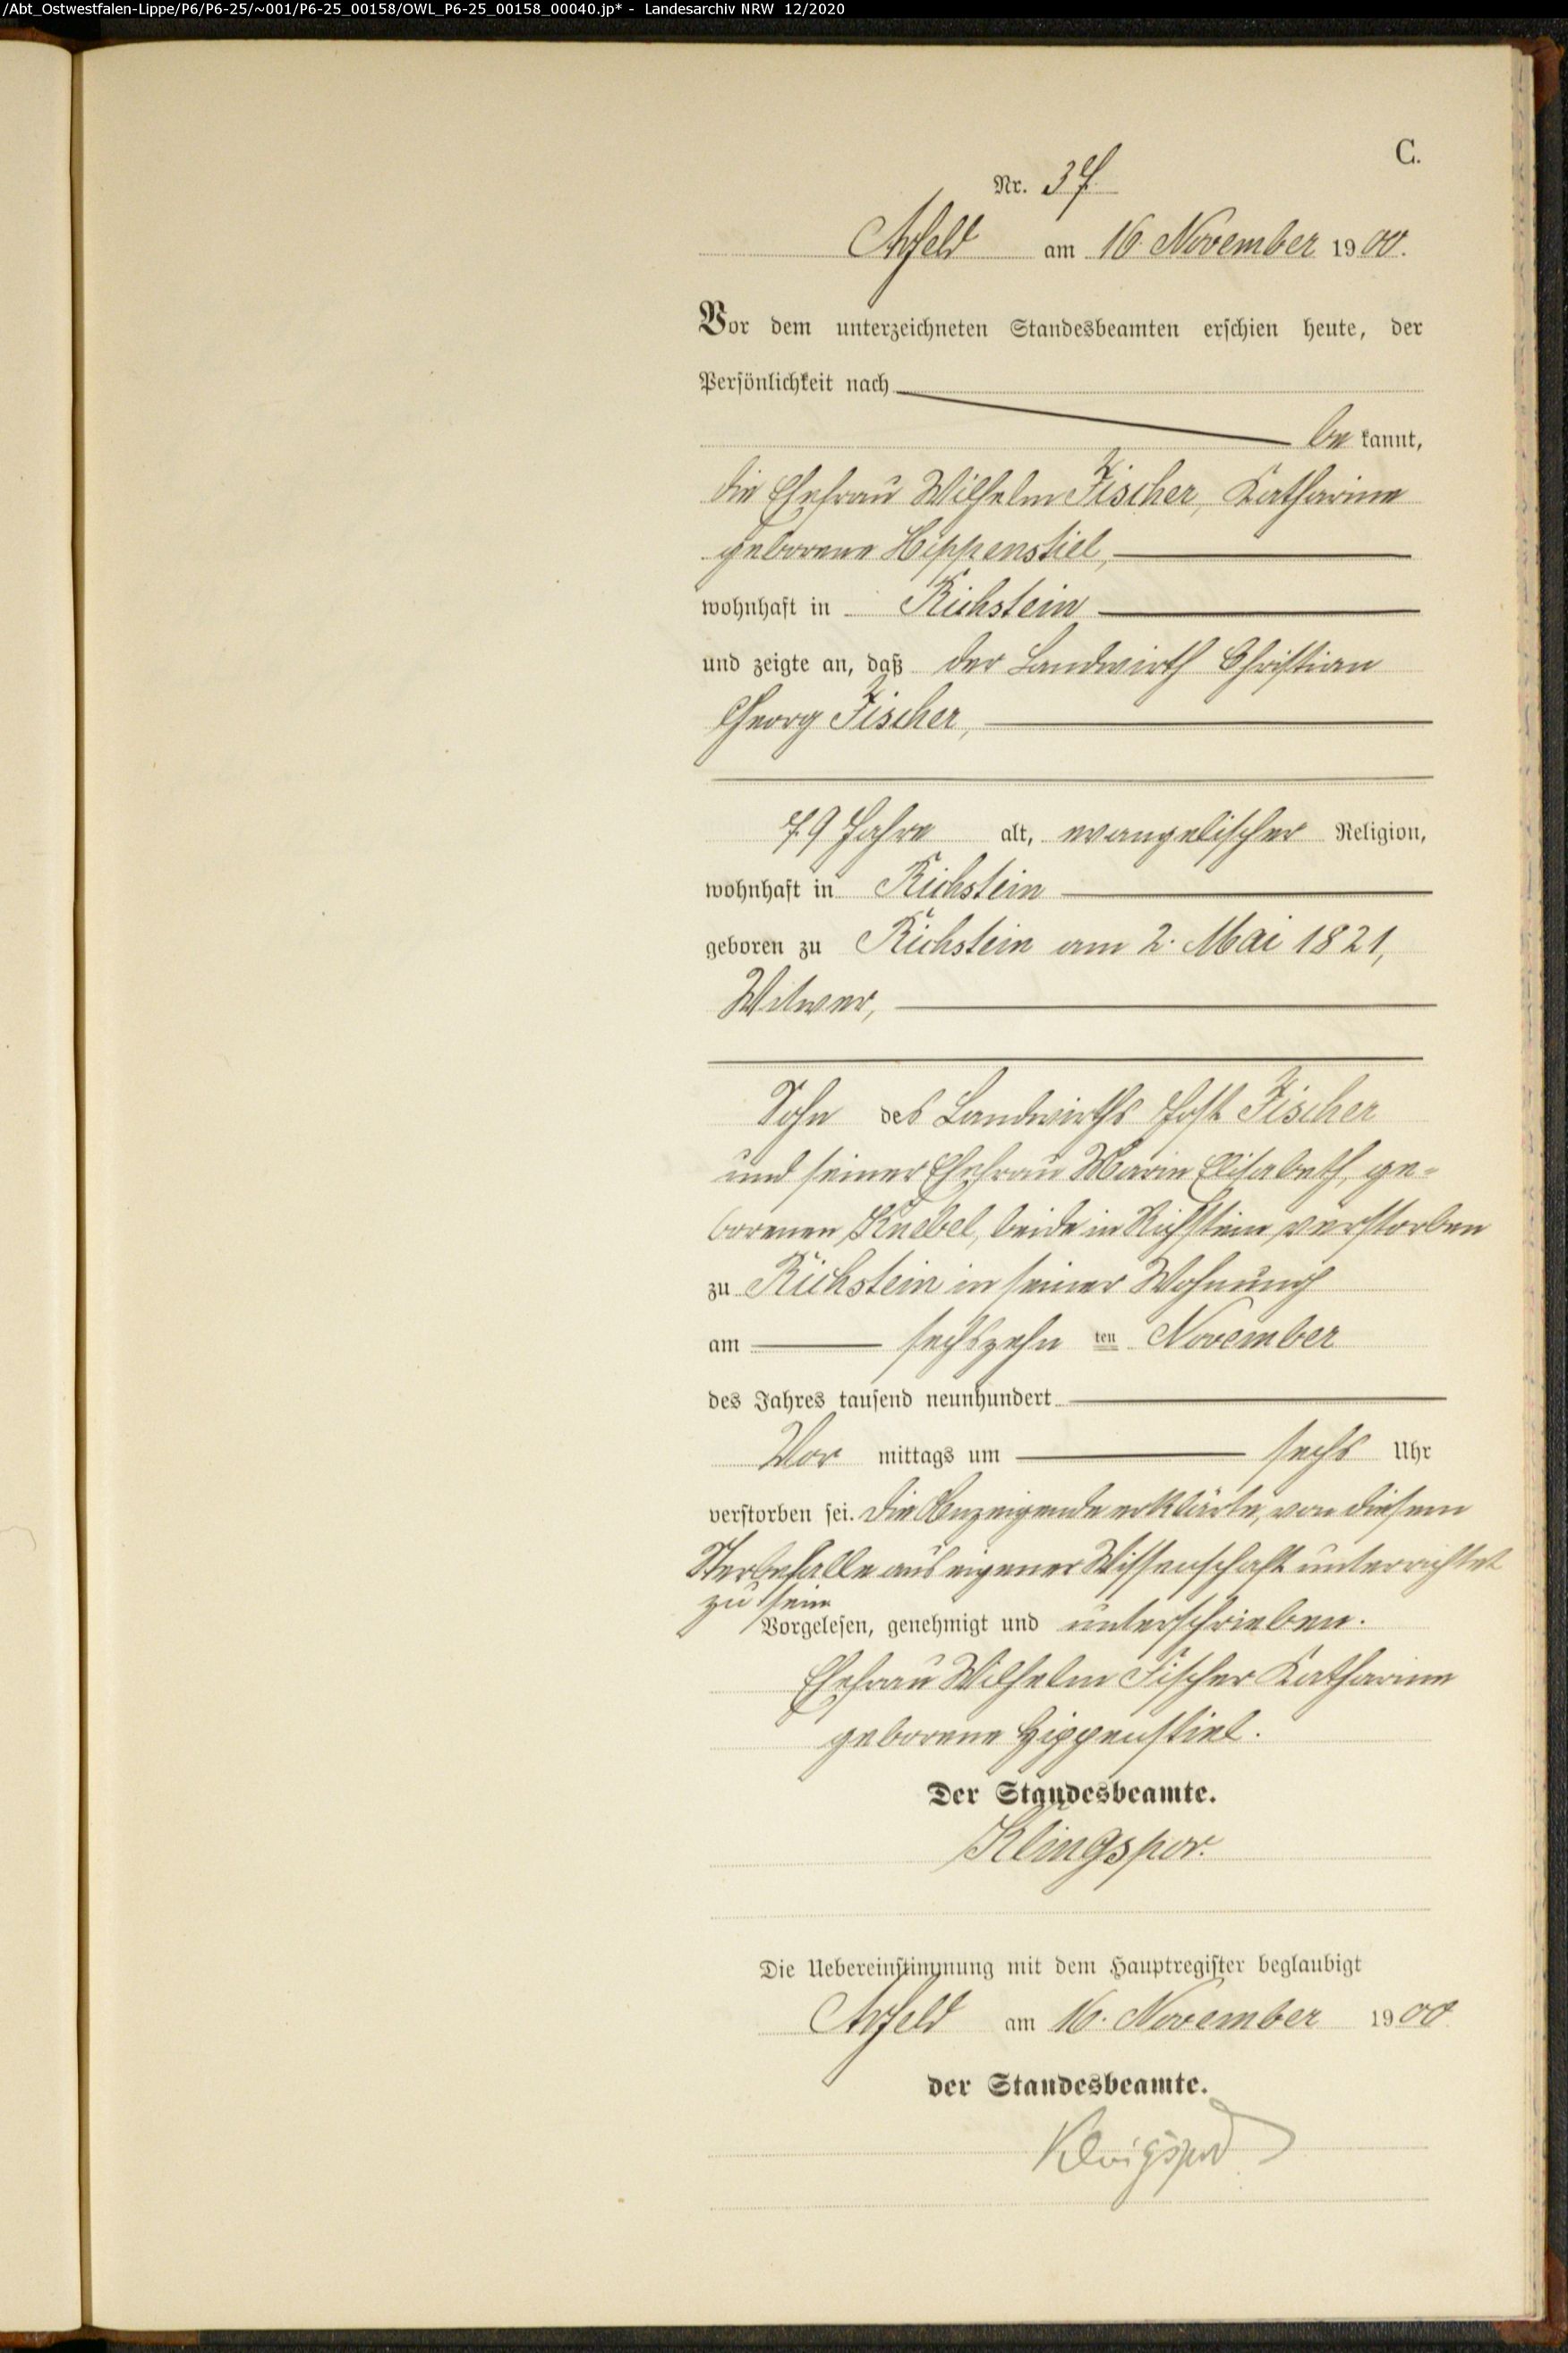 /Abt_Ostwestfalen-Lippe/P6/P6-25/~001/P6-25_00158/OWL_P6-25_00158_00040.jp* - Landesarchiv NRW 12/2020
C.
Nr. 37
Arfeld am 16. November 1900.
Vor dem unterzeichneten Standesbeamten erschien heute, der
Persönlichkeit nach
bekannt,
die Ehefrau Wilhelm Fischer, Katharine
geborene Hippenstiel,
wohnhaft in Richstein
und zeigte an, daß der Landwirth Christian
Georg Fischer,
79 Jahre alt, evangelischer Religion,
wohnhaft in Richstein
geboren zu Richstein am 2. Mai 1821,
Witwer,
Sohn des Landwirths Jost Fischer
und seiner Ehefrau Marie Elisabeth, ge-
borenen Knebel, beide in Richstein verstorben
zu Richstein in seiner Wohnung
am sechszehn ten November
des Jahres tausend neunhundert
Vor mittags um sechs Uhr
verstorben sei. Die Anzeigende erklärte, von diesem
Sterbefalle aus eigener Wissenschaft unterrichtet
zu sein
Vorgelesen, genehmigt und unterschrieben.
Ehefrau Wilhelm Fischer Katharine
geborene Hippenstiel.
Der Standesbeamte.
Klingspor.
Die Uebereinstimmung mit dem Hauptregister beglaubigt
Arfeld am 16. November 1900
der Standesbeamte.
Klingspor